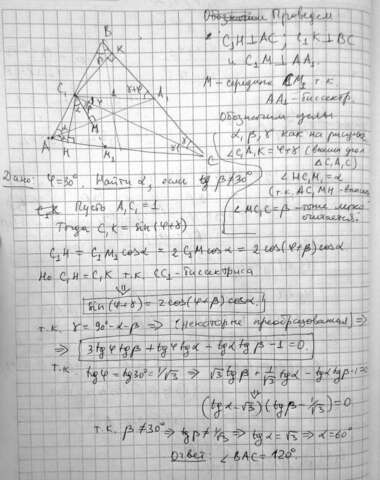 Проведем
C₁H⊥AC ; C₁K⊥BC
и C₁M ⊥ AA₁.
M – середина C₁M₁ т.к
AA₁ – биссектр.
Обозначим углы
α, β, γ как на рисунке
∠C₁A₁K = φ+γ (внешн. угол
ΔCA₁C₁)
∠HC₁M₁ = α
(т.к. AC₁MH – впис.)
∠MC₁C = β – тоже легко
B
K
C₁
A₁
φ+γ
φ
M
A
H
M₁
C
α
γ
Дано: φ=30°. Найти α, если tg β ≠ 30°
Пусть A₁C₁ = 1.
Тогда C₁K = sin(φ+γ)
C₁H = C₁M₁ cosα = 2 C₁M cosα = 2 cos(φ+β) cosα
Но C₁H = C₁K т.к. CC₁ – биссектриса
⇓
sin(φ+γ) = 2cos(φ+β) cosα
т.к. γ = 90°-α-β ⇒ (некоторые преобразования) ⇒
⇒ 3tgφ tgβ + tgφ tgα - tgα tgβ - 1 = 0
т.к. tgφ = tg30° = 1/√3 ⇒ √3 tgβ + 1/√3 tgα - tgα tgβ - 1 = 0
⇓
(tgα - √3)(tgβ - 1/√3) = 0
т.к. β ≠ 30° ⇒ tgβ ≠ 1/√3 ⇒ tgα = √3 ⇒ α = 60°
Ответ: ∠BAC = 120°.